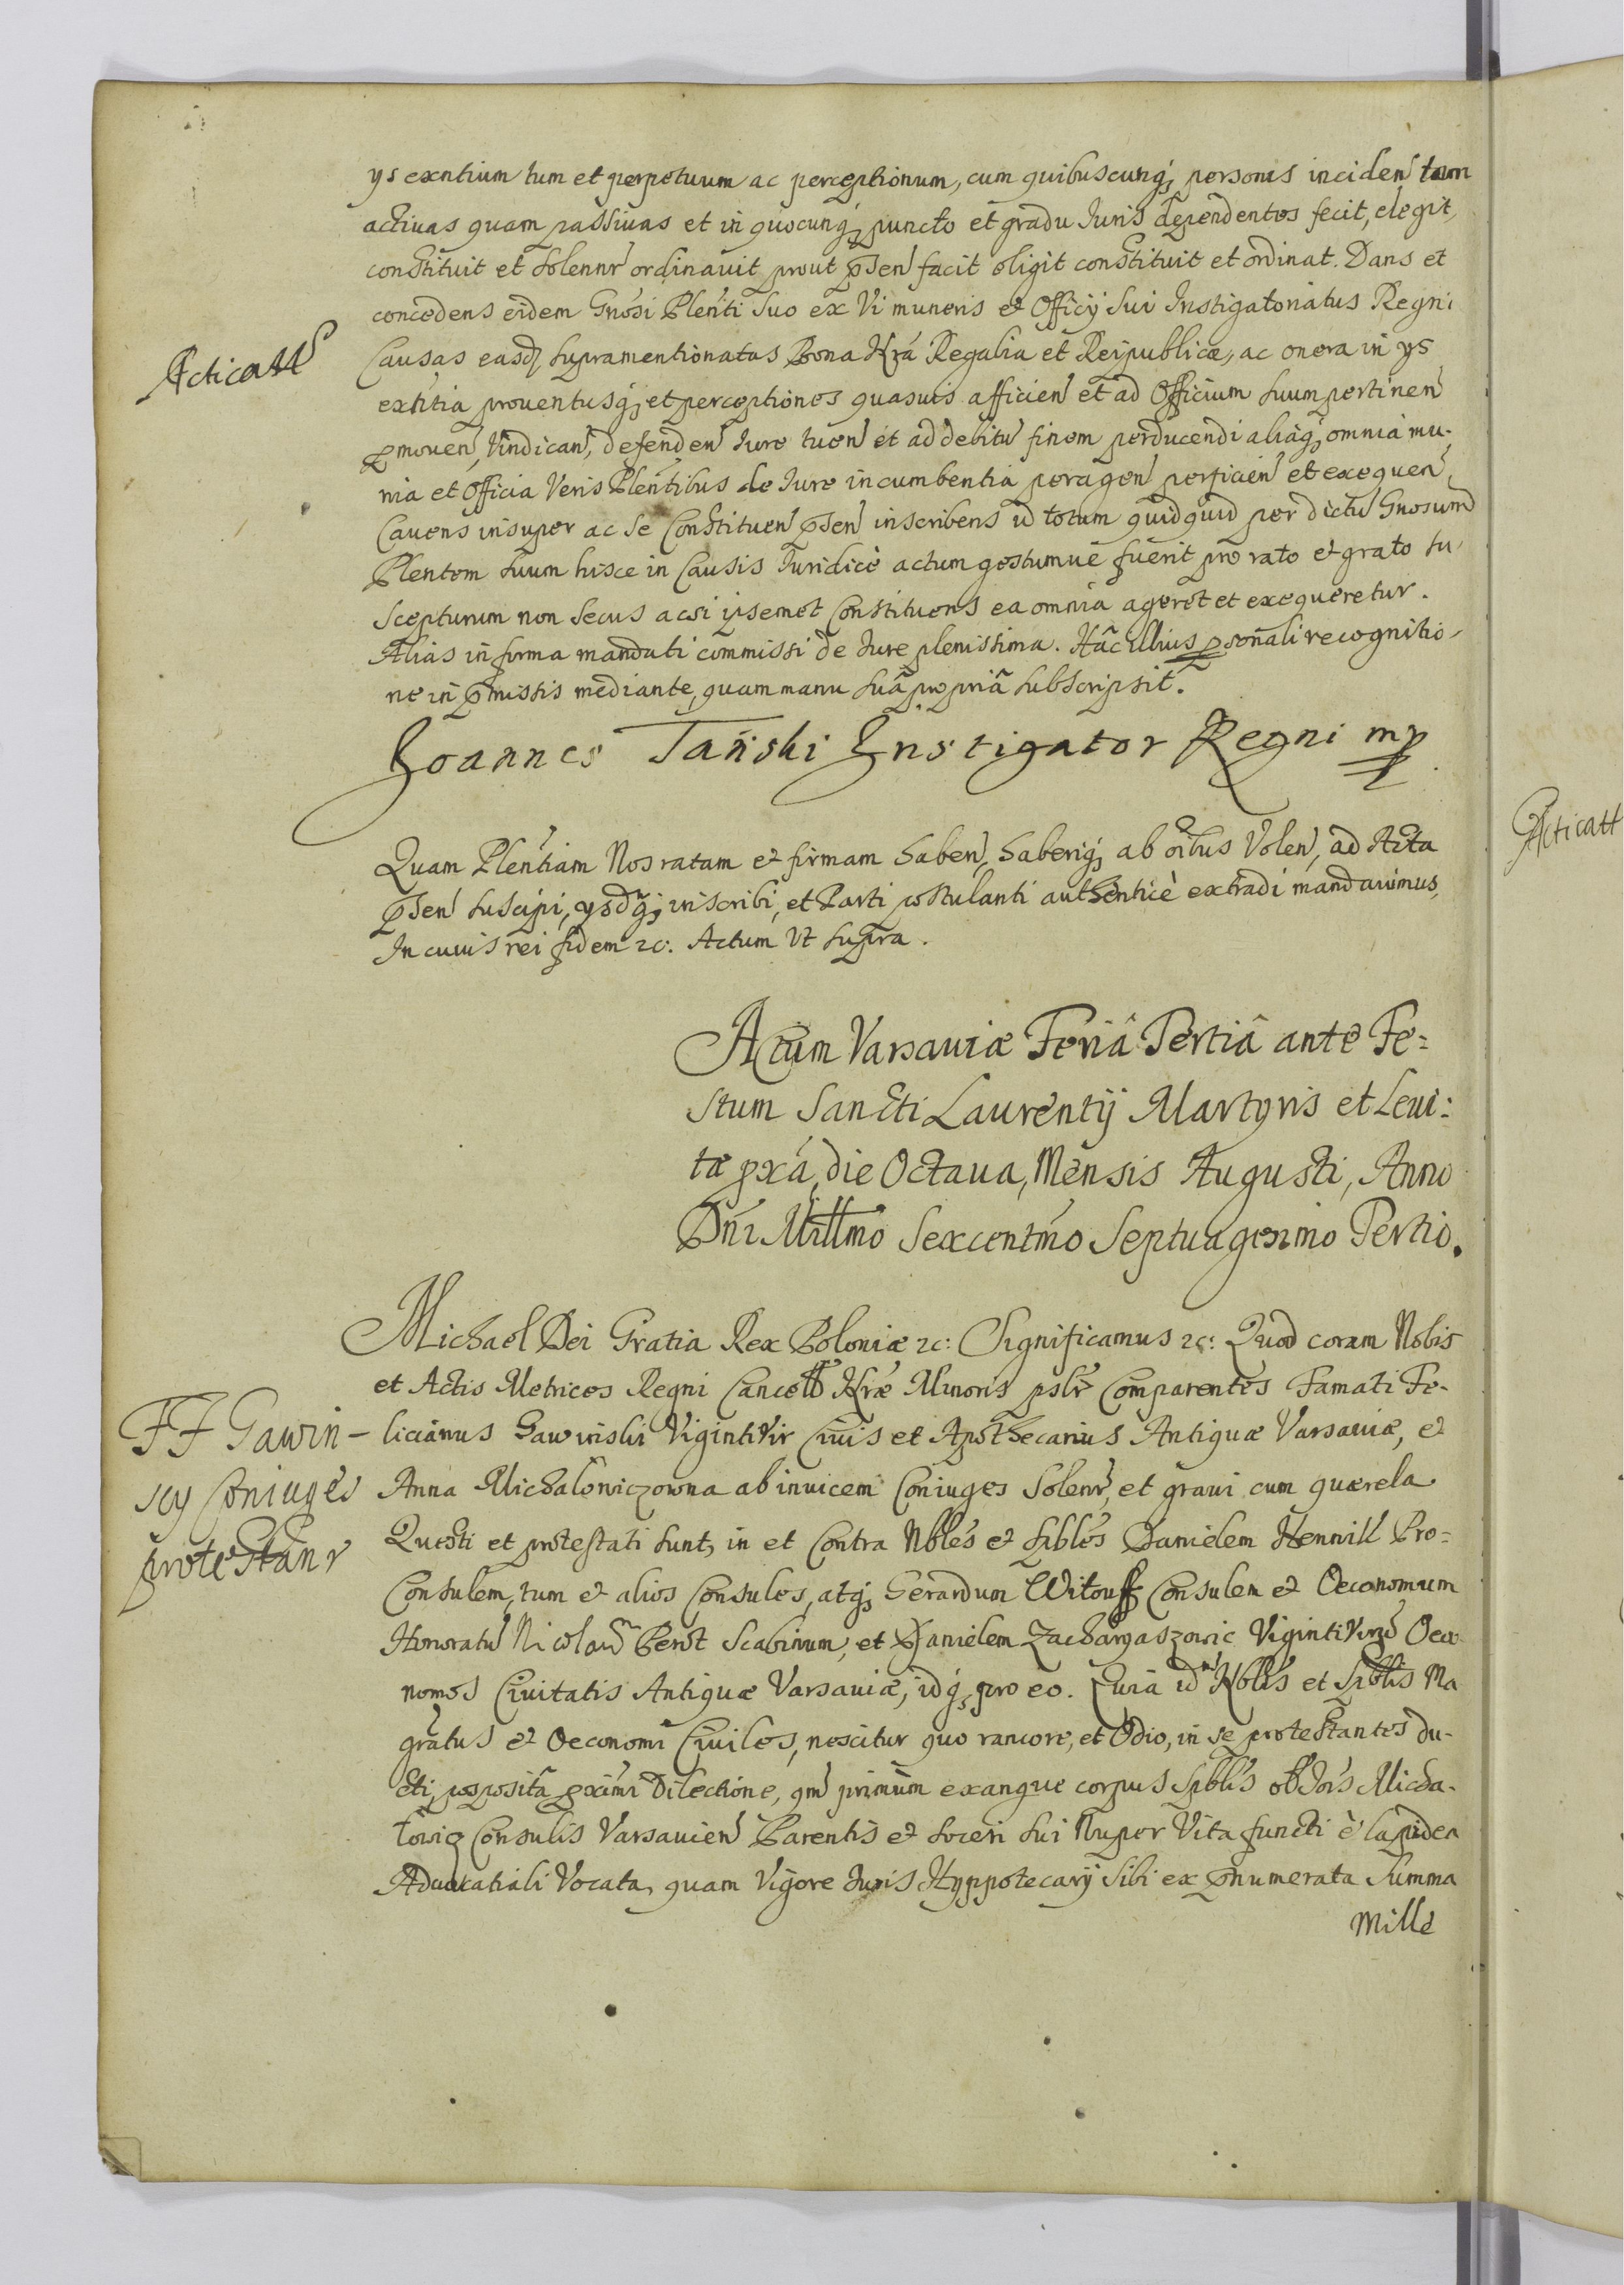 ys exntium tum et perpetuum ac perceptionum, cum quibuscunq; personis inciden tam
activas quam passivas et in quocunq; puncto et gradu Iuris dependentes fecit, elegit,
constituit et solennr ordinauit prout pñsen facit eligit constituit et ordinat. Dans et
concedens eidem Gnosi Plenti suo ex Vi muneris et Officy sui Instigatoriatus Regni
Acticatt
Causas easd supramentionatas Bona Nrá Regalia et Reipublicæ, ac onera in ys
extitia prouentusq; et perceptiones quasuis afficien et ad Officium suum pertinen
pmouen, Vindican, defenden Iure tuen et ad debitu finem perducendi aliaq; omnia mu-
nia et Officia Veris Plentibus de Iure incumbentia peragen perficien et exequen,
Cauens insuper ac se Constituen pñsen inscribens id totum quidquid per dictu Gnosum
Plentem suum hisce in Causis Iuridicè actum gestumue fuerit pro rato et grato su-
scepturum non secus acsi ipsemet Constituens ea omnia ageret et exequeretur.
Alias in forma mandati commissi de Iure plenissima. Hâc illius psonali recognitio-
ne in pmissis mediante, quam manu suâ propriâ subscripsit.
Joannes Tański Instigator Regni mp
Quam Plentiam Nos ratam et firmam haben, haberiq; ab oibus Volen, ad Acta
pñsen suscipi, ysdq; inscribi, et Parti postulanti authenticè extradi mandauimus,
In cuuis rei fidem &c. Actum Vt supra.
Actum Varsauiæ Feriâ Tertiâ ante Fe-
stum Sancti Laurentij Martyris et Leui-
tæ pxá, die Octaua, Mensis Augusti, Anno
Dni Millmo Sexcentmo Septuagesimo Tertio.
Michael Dei Gratia Rex Poloniæ &c: Significamus &c: Quod coram Nobis
et Actis Metrices Regni Cancell Nræ Minoris pslr Comparentes Famati Fe-
FF Gawin-
scy Coniuges
protestanr
licianus Gawinski Vigintivir Ciuis et Apothecarius Antiquæ Varsauiæ, et
Anna Michalowiczowna ab inuicem Coniuges Solenr, et graui cum quærela
Questi et protestati sunt, in et Contra Nbles et spbles Danielem Hennill Pro-
Consulem, tum et alios Consules, atq; Gerardum Witouff Consulem et Oeconomum
Honoratu Nicolaum Benot Scabinum, et Danielem Zacharyaszowic Vigintivirum Oeco-
nomos Ciuitatis Antiquæ Varsauiæ, idq; pro eo. Quia idm Nblis et Spblis Ma
gratus et Oeconomi Ciuiles, nescitur quo rancore, et Odio, in se protestantes du-
cti, posposita pximi Dilectione, qm primum exangue corpus Spblis olim Iois Micha-
lowic Consulis Varsauien Parentis et soceri sui Nuper Vita functi è lapidea
Aduocatiali Vocata, quam Vigore Iuris Hyppotecarij sibi ex pnumerata Summa
Mille
Acticatt